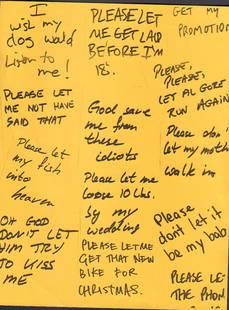 I
wish my
dog would
listen to
me!
PLEASE LET
ME NOT HAVE
SAID THAT
Please let
my fish
into
heaven
OH GOD
DON'T LET
HIM TRY
TO KISS
ME
PLEASE LET
ME GET LAID
BEFORE I'M
18.
God save
me from
these
idiots
Please let me
loose 10 lbs.
by my
wedding
PLEASE LET ME
GET THAT NEW
BIKE FOR
CHRISTMAS.
GET MY
PROMOTION
PLEASE,
PLEASE,
LET AL GORE
RUN AGAIN
Please don'
let my moth
walk in
Please
don't let it
be my bab
PLEASE LE
THE PHON